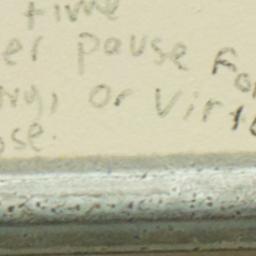 time
er pause for
ry, or Virt
ose.